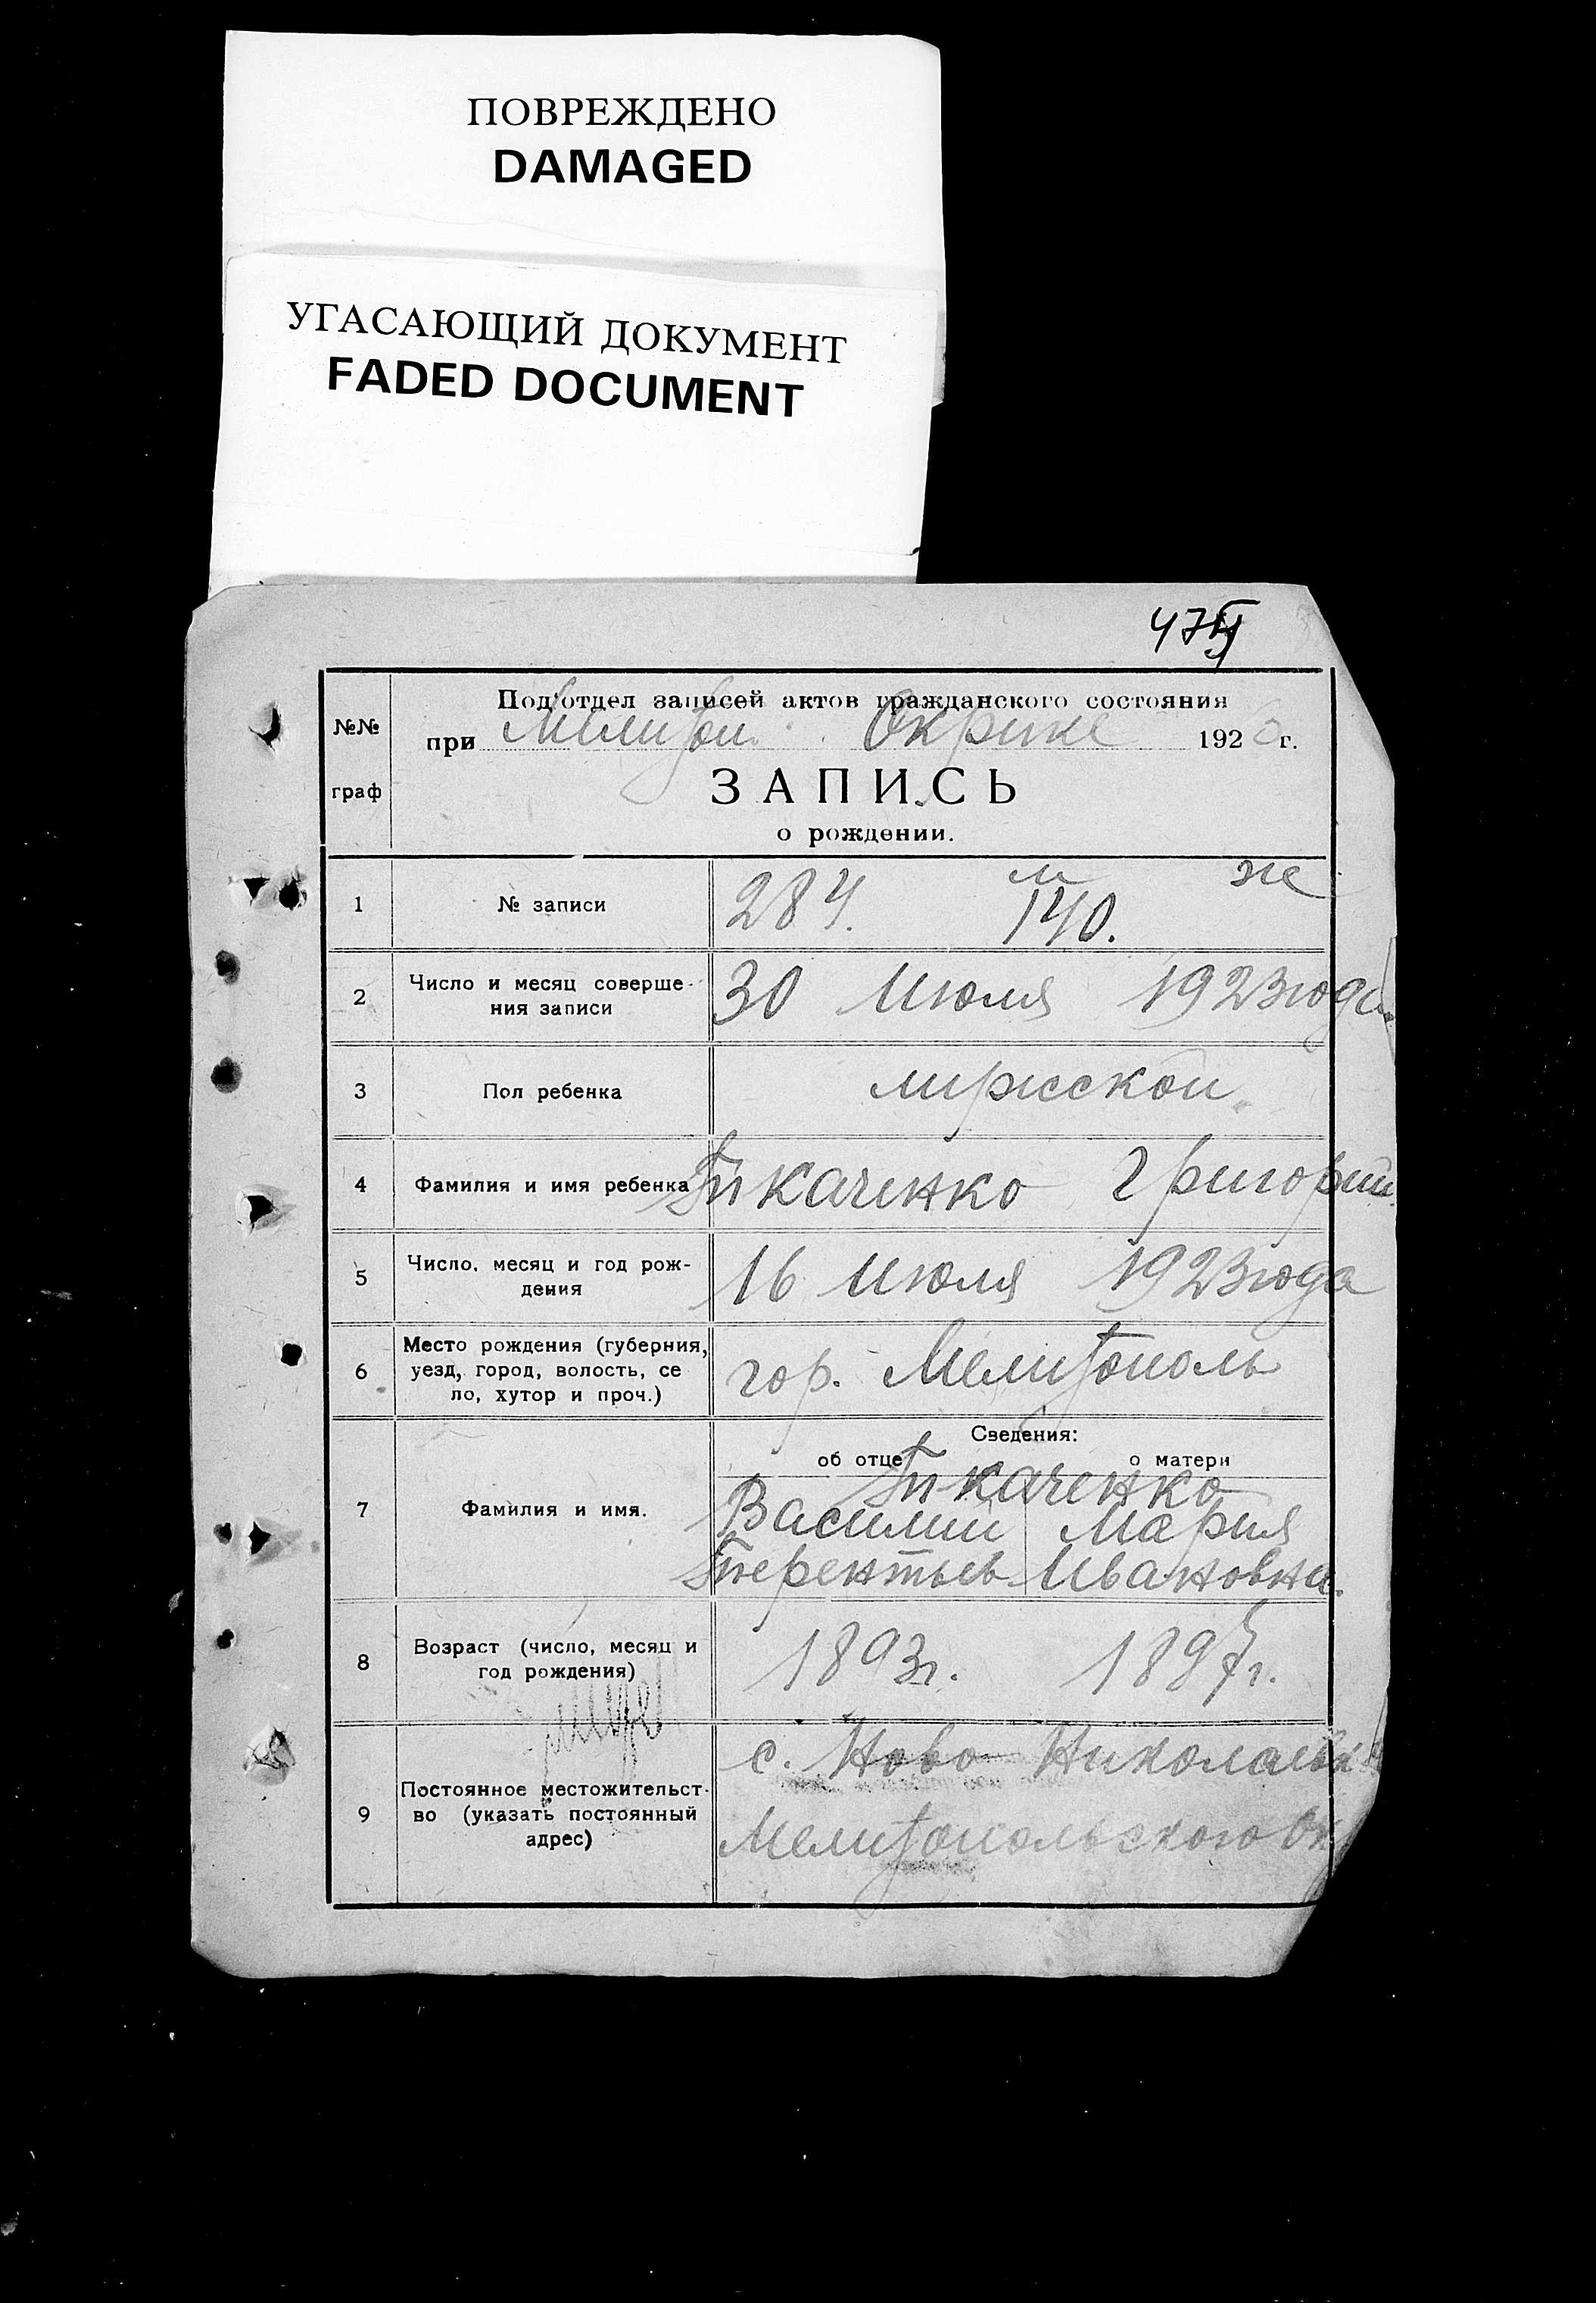 ПОВРЕЖДЕНО
DAMAGED
УГАСАЮЩИЙ ДОКУМЕНТ
FADED DOCUMENT
№№
граф
Под'отдел записей актов гражданского состояния
при Мелитоп. Окрике 192 г.
ЗАПИСЬ
о рождении.
м ж
1 № записи 284. 140.
2 Число и месяц соверше-
ния записи 30 Июля 1923 года.
3 Пол ребенка мужской
4 Фамилия и имя ребенка Ткаченко Григорий
5 Число, месяц и год рож-
дения 16 Июля 1923 года
6 Место рождения (губерния,
уезд, город, волость, се
ло, хутор и проч.) гор. Мелитополь
Сведения:
об отце о матери
Ткаченко
7 Фамилия и имя. Василий Мария
Терентьев Ивановна.
8 Возраст (число, месяц и
год рождения) 1893 г. 1897 г.
с. Ново-
9 Постоянное местожительст-
во (указать постоянный
адрес) Мелитопольского Ок